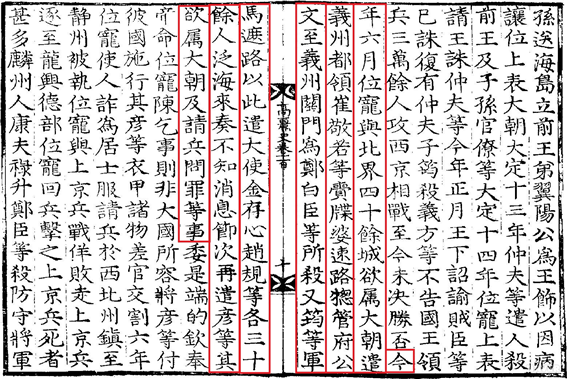 孫送海島立前王弟翼陽公為王飾以因病
讓位上表大朝大定十三年仲夫等遣人殺
前王及子孫官僚等大定十四年位寵上表
請王誅仲夫等今年正月王下詔諭賊臣等
已誅復有仲夫子筠殺義方等不告國王領
兵三萬餘人攻西京相戰至今未決勝否今
年六月位寵與北界四十餘城欲属大朝遣
義州都領崔敬若等賫牒婆速路摠管府公
文至義州關門為鄭白臣等所殺又筠等軍
高麗史卷一百
十
馬遮路以此遣大使金存心趙規等各三十
餘人泛海來奏不知消息節次再遣彦等其
欲属大朝及請兵問罪等事委是端的欽奏
帝命位寵陳乞事則非大國所容將彦等付
彼國施行其彦等衣甲諸物差官交割六年
位寵使人詐為居士服請兵於西北州鎮至
静州被執位寵與上京兵戰佯敗走上京兵
逐至龍興德部位寵回兵擊之上京兵死者
甚多麟州人康夫祿升鄭臣等殺防守將軍